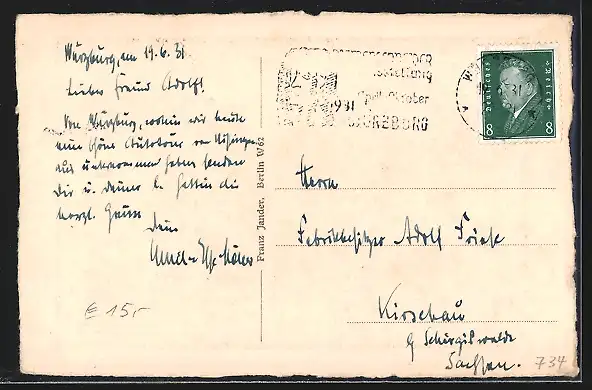 Würzburg, am 19.6.31
Lieber Freund Adolf!
Von Würzburg, wohin wir heute
eine schöne Autotour von Kissingen
aus unternommen haben senden
Dir u. Deiner l. Gattin die
herzl. Grüsse
Dein
€ 15,-
Franz Jander, Berlin W 62
1931
April-Oktober
WÜRZBURG
Deutsches Reich
8 8
Herrn
Fabrikbesitzer Adolf Friese
Kirschau
b/ Schirgiswalde
Sachsen.
734